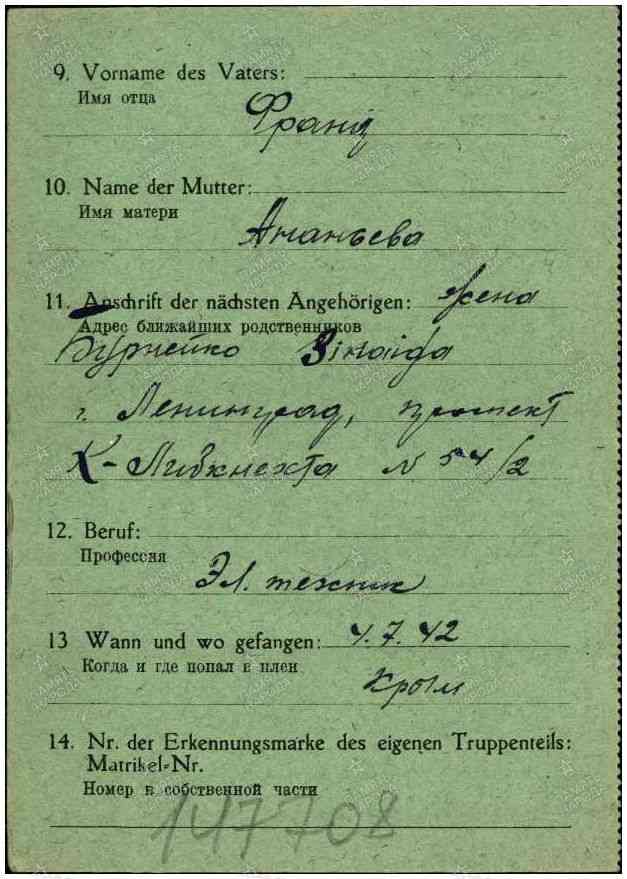 9. Vorname des Vaters:
Имя отца
Франц
10. Name der Mutter:
Имя матери
Ананьева
11. Anschrift der nächsten Angehörigen: жена
Адрес ближайших родственников
Бурнейко Зінаіда
г. Ленинград, проспект
К-Либкнехта N 54/2
12. Beruf:
Профессия
Эл. техник
13 Wann und wo gefangen: 4.7.42
Когда и где попал в плен
Крым
14. Nr. der Erkennungsmarke des eigenen Truppenteils:
Matrikel-Nr.
Номер в собственной части
147708